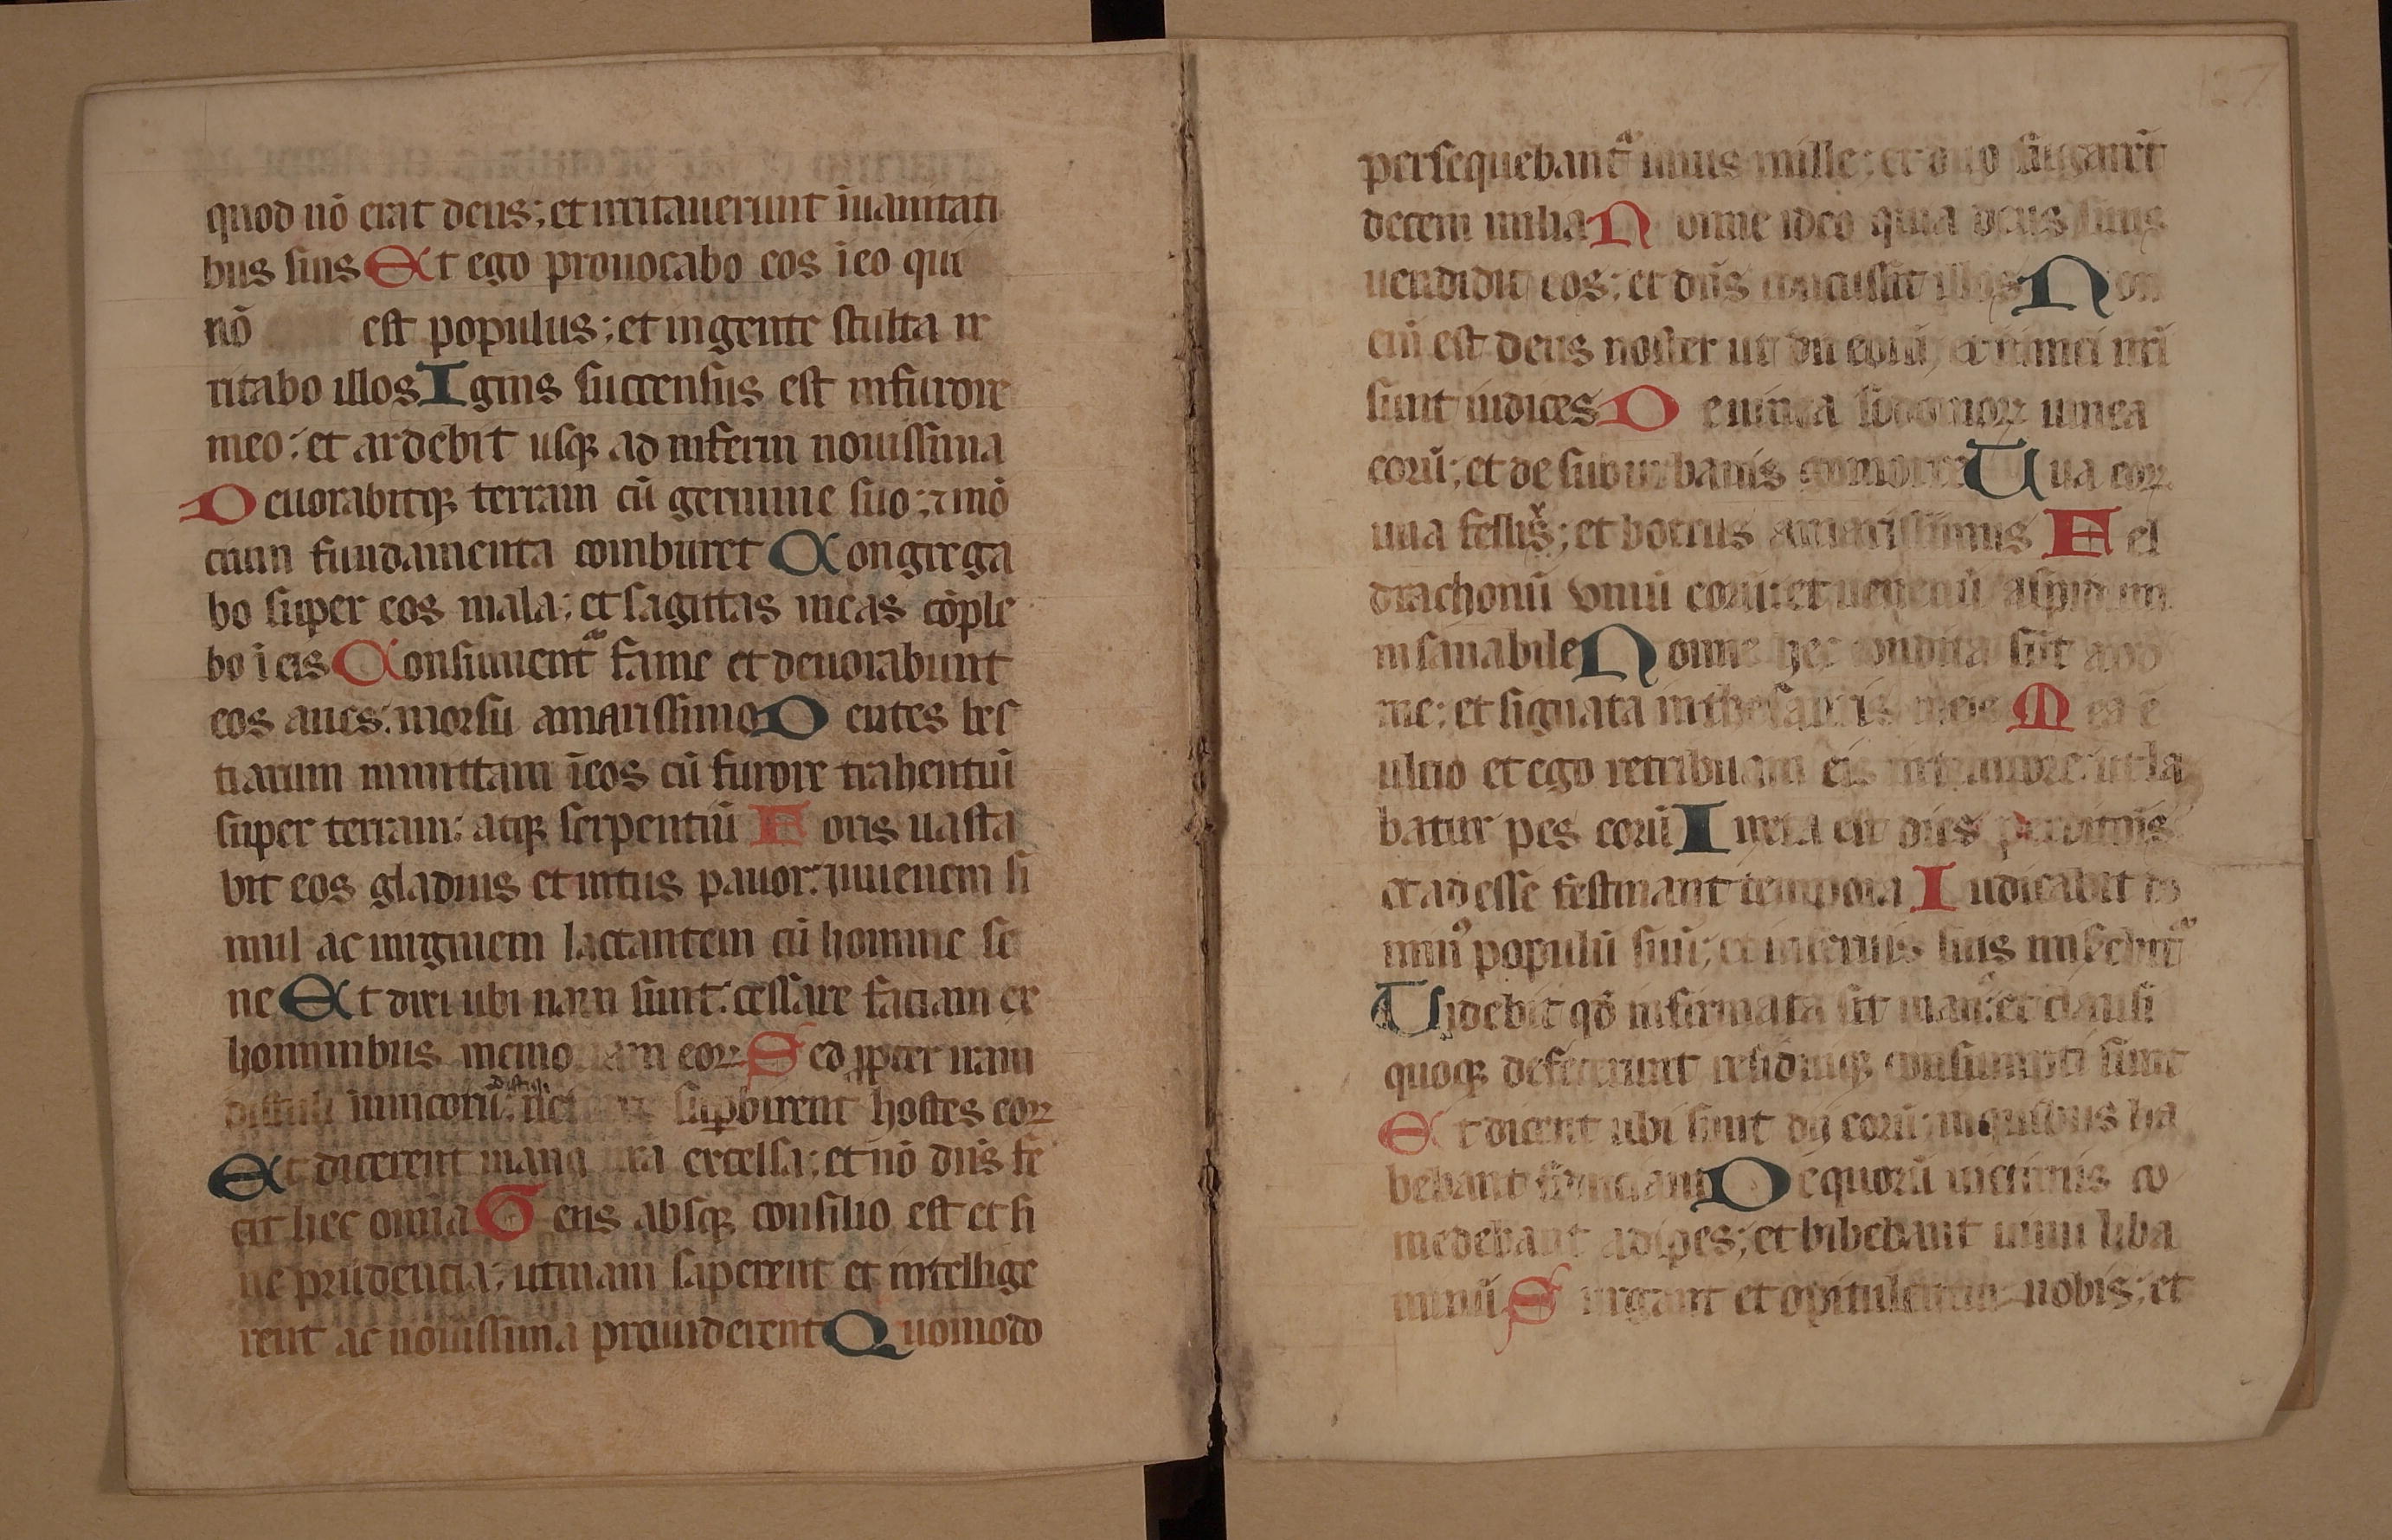 quod nō erat deus; et irritauerunt ī uanitati
bus suis Et ego prouocabo eos ī eo qui
nō est populus; et in gente stulta ir
ritabo illos Ignis succensus est in furore
meo: et ardebit usq; ad inferni nouissima
Deuorabitq; terram cū germine suo; ⁊ mō
cium fundamenta comburet Congrega
bo super eos mala; et sagittas meas cōple
bo ī eis Consumentur fame et deuorabunt
eos aues: morsu amarissimo Dentes bes
tiarum inmittam ī eos cū furore trahentiū
super terram: atq; serpentiū Foris uasta
bit eos gladius et intus pauor: iuuenem si
mul ac uirginem lactantem cū homine se
ne Et dixi ubi nam sunt: cessare faciam ex
hominibus memoriam eoꝝ Sed ꝓpter iram
Distuli
distuli inimicorū: ne superbirent hostes eoꝝ
Et dicerent manꝰ nra excelsa; et nō dn̄s fe
cit hec omīa Gens absq; consilio est et si
ne prudencia; utinam saperent et intellige
rent ac nouissima prouiderent Quomodo
127
persequebantur unus mille; et duo fugarēt
decem milia Nonne ideo quia deus suus
uendidit eos; et dn̄s conclusit illos Non
eni est deus noster ut dii eorū, et inimici nri
sunt iudices De uinea sodomoꝝ uinea
eorū; et de suburbanis gomorre Uua eoꝝ
uua fellis; et botrus amarissimus Fel
drachonū uinū eorū: et uenenū aspidum
insanabile Nonne hec condita sūt apud
me: et signata in thesauris meis Mea ē
ultio et ego retribuam eis in tempore: ut la
batur pes eorū Iuxta est dies perditiōis
et adesse festinant tempora Iudicabit do
minꝰ populū suū; et in seruis suis misebitur
Uidebit qđ infirmata sit manꝰ: et clausi
quoq; defecerunt residuiq; consumpti sunt
Et dicent ubi sunt dii eorū; in quibus ha
bebant fiduciam De quorū uictimis co
medebant adipes; et bibebant uinū liba
minū Surgant et opitulentur uobis; et